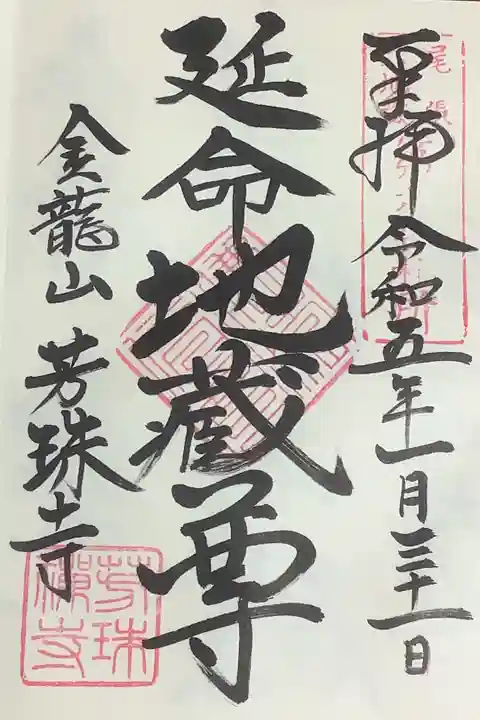 奉拝 令和五年一月三十一日
延命地蔵尊
金龍山 芳珠寺
尾張
芳珠
禅寺